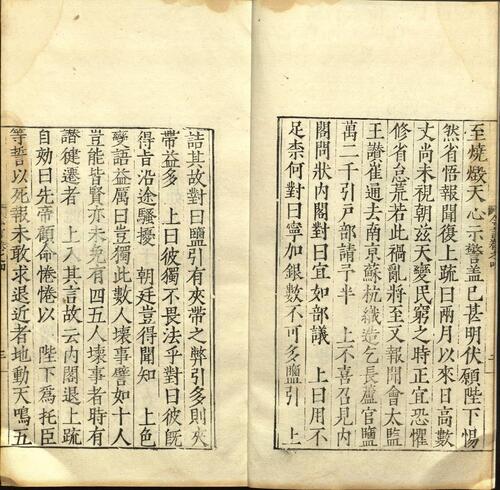 至燒燬天心示警蓋已甚明伏願陛下惕
然省悟報聞復上疏曰兩月以來日高數
丈尚未視朝茲天變民窮之時正宜恐懼
修省怠荒若此禍亂將至又報聞會太監
王讃崔通去南京蘇杭織造乞長蘆官鹽
萬二千引戶部請予半　上不喜召見内
閣問狀内閣對曰宜如部議　上曰用不
足柰何對曰寧加銀數不可多鹽引　上
詰其故對曰鹽引有夾帶之弊引多則夾
帶益多　上曰彼獨不畏法乎對曰彼既
得旨沿途騷擾　朝廷豈得聞知　上色
變語益厲曰豈獨此數人壞事譬如十人
豈能皆賢亦未免有四五人壞事者時有
譖健遷者　上入其言故云内閣退上疏
自効曰先帝顧命惓惓以　陛下為托臣
等誓以死報未敢求退近者地動天鳴五